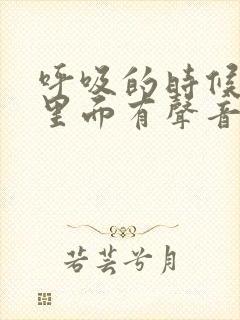 呼吸的時候
里面有聲音
若芸兮月